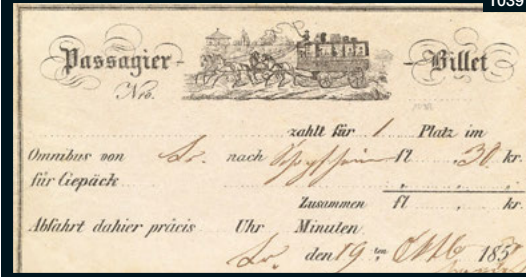 1039
Passagier-Billet
Nro.
zahlt für 1 Platz im
Omnibus von nach fl 30 kr.
für Gepäck
Zusammen fl kr.
Abfahrt dahier präcis Uhr Minuten
den 19 ten Oktb 185